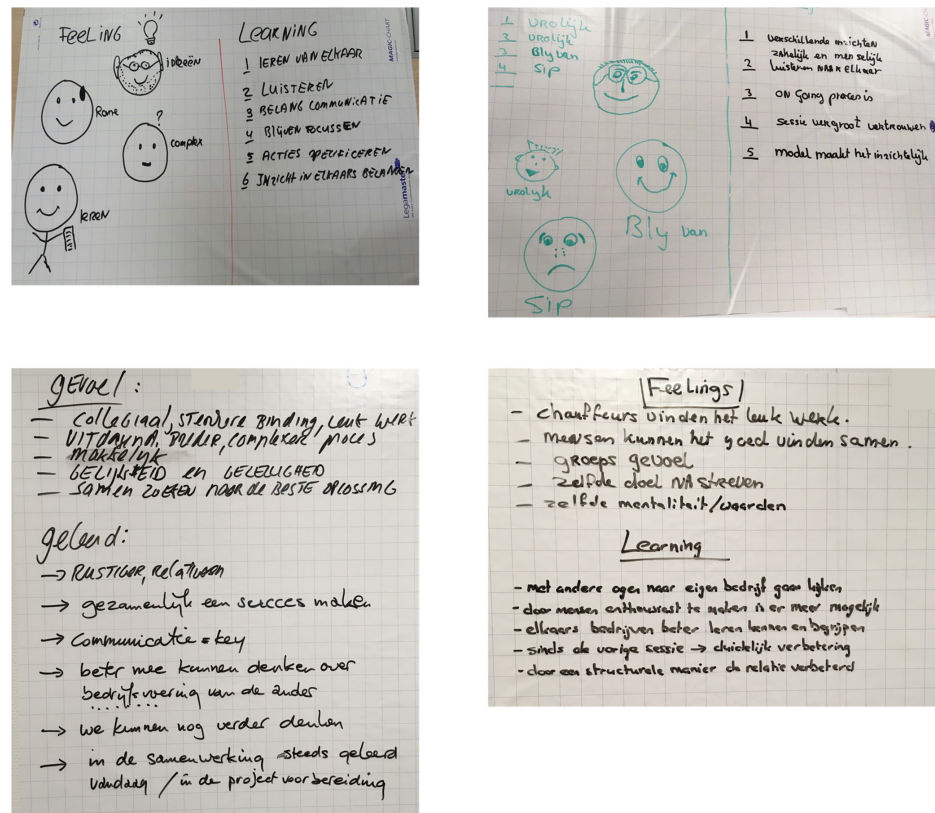 FEELING
ideeën
Rane
?
complex
leren
LEARNING
1 LEREN VAN ELKAAR
2 LUISTEREN
3 BELANG COMMUNICATIE
4 BLIJVEN FOCUSSEN
5 ACTIES SPECIFICEREN
6 INZICHT IN ELKAARS BELANGEN
MAGIC-CHART
Legamaster
1 VROLIJK
2 VROLIJK
3 Bly van
4 Sip
VROLYK
Bly van
Sip
1 verschillende inzichten
zakelijk en menselijk
2 luisteren NAAR elkaar
3 ON Going proces is
4 sessie vergroot vertrouwen
5 model maakt het inzichtelijk
gevoel:
— collegiaal, sterkere Binding, leuk werk
— UITDAGEND, complexer proces
— makkelijk
— GELIJKHEID en GEZELLIGHEID
— SAMEN ZOEKEN NAAR DE BESTE OPLOSSING
geleerd:
→ RUSTIGER, relativeren
→ gezamenlijk een succes maken
→ Communicatie = key
→ beter mee kunnen denken over
bedrijfsvoering van de ander
→ we kunnen nog verder denken
→ in de samenwerking steeds geleerd
vandaag / in de project voorbereiding
Feelings
- chauffeurs vinden het leuk werk.
- mensen kunnen het goed vinden samen.
- groeps gevoel
- zelfde doel NAstreven
- zelfde mentaliteit/waarden
Learning
- met andere ogen naar eigen bedrijf gaan kijken
- door mensen enthousiast te maken is er meer mogelijk
- elkaars bedrijven beter leren kennen en begrijpen
- sinds de vorige sessie → duidelijk verbetering
- door een structurele manier de relatie verbeterd